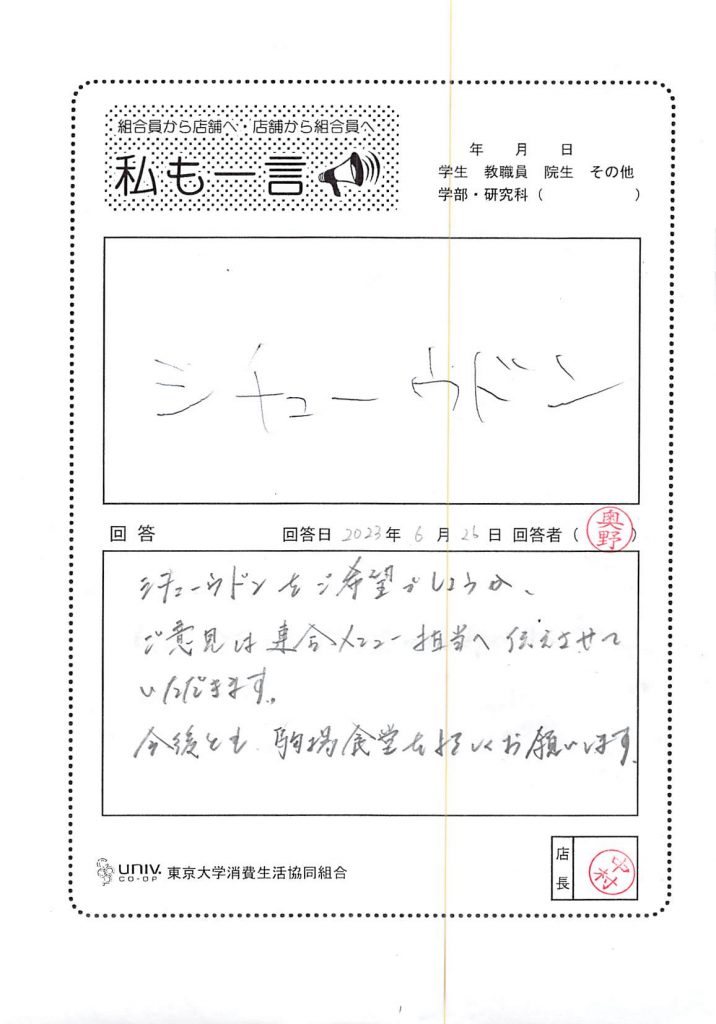 組合員から店舗へ・店舗から組合員へ
私も一言
年 月 日
学生 教職員 院生 その他
学部・研究科（ ）
シチューウドン
回答 回答日 2023年 6月 26日 回答者（奥野）
シチューウドンをご希望でしょうか、
ご意見は連合メニュー担当へ伝えさせて
いただきます。
今後とも、駒場食堂をよろしくお願いします。
UNIV. CO-OP 東京大学消費生活協同組合
店長 中村